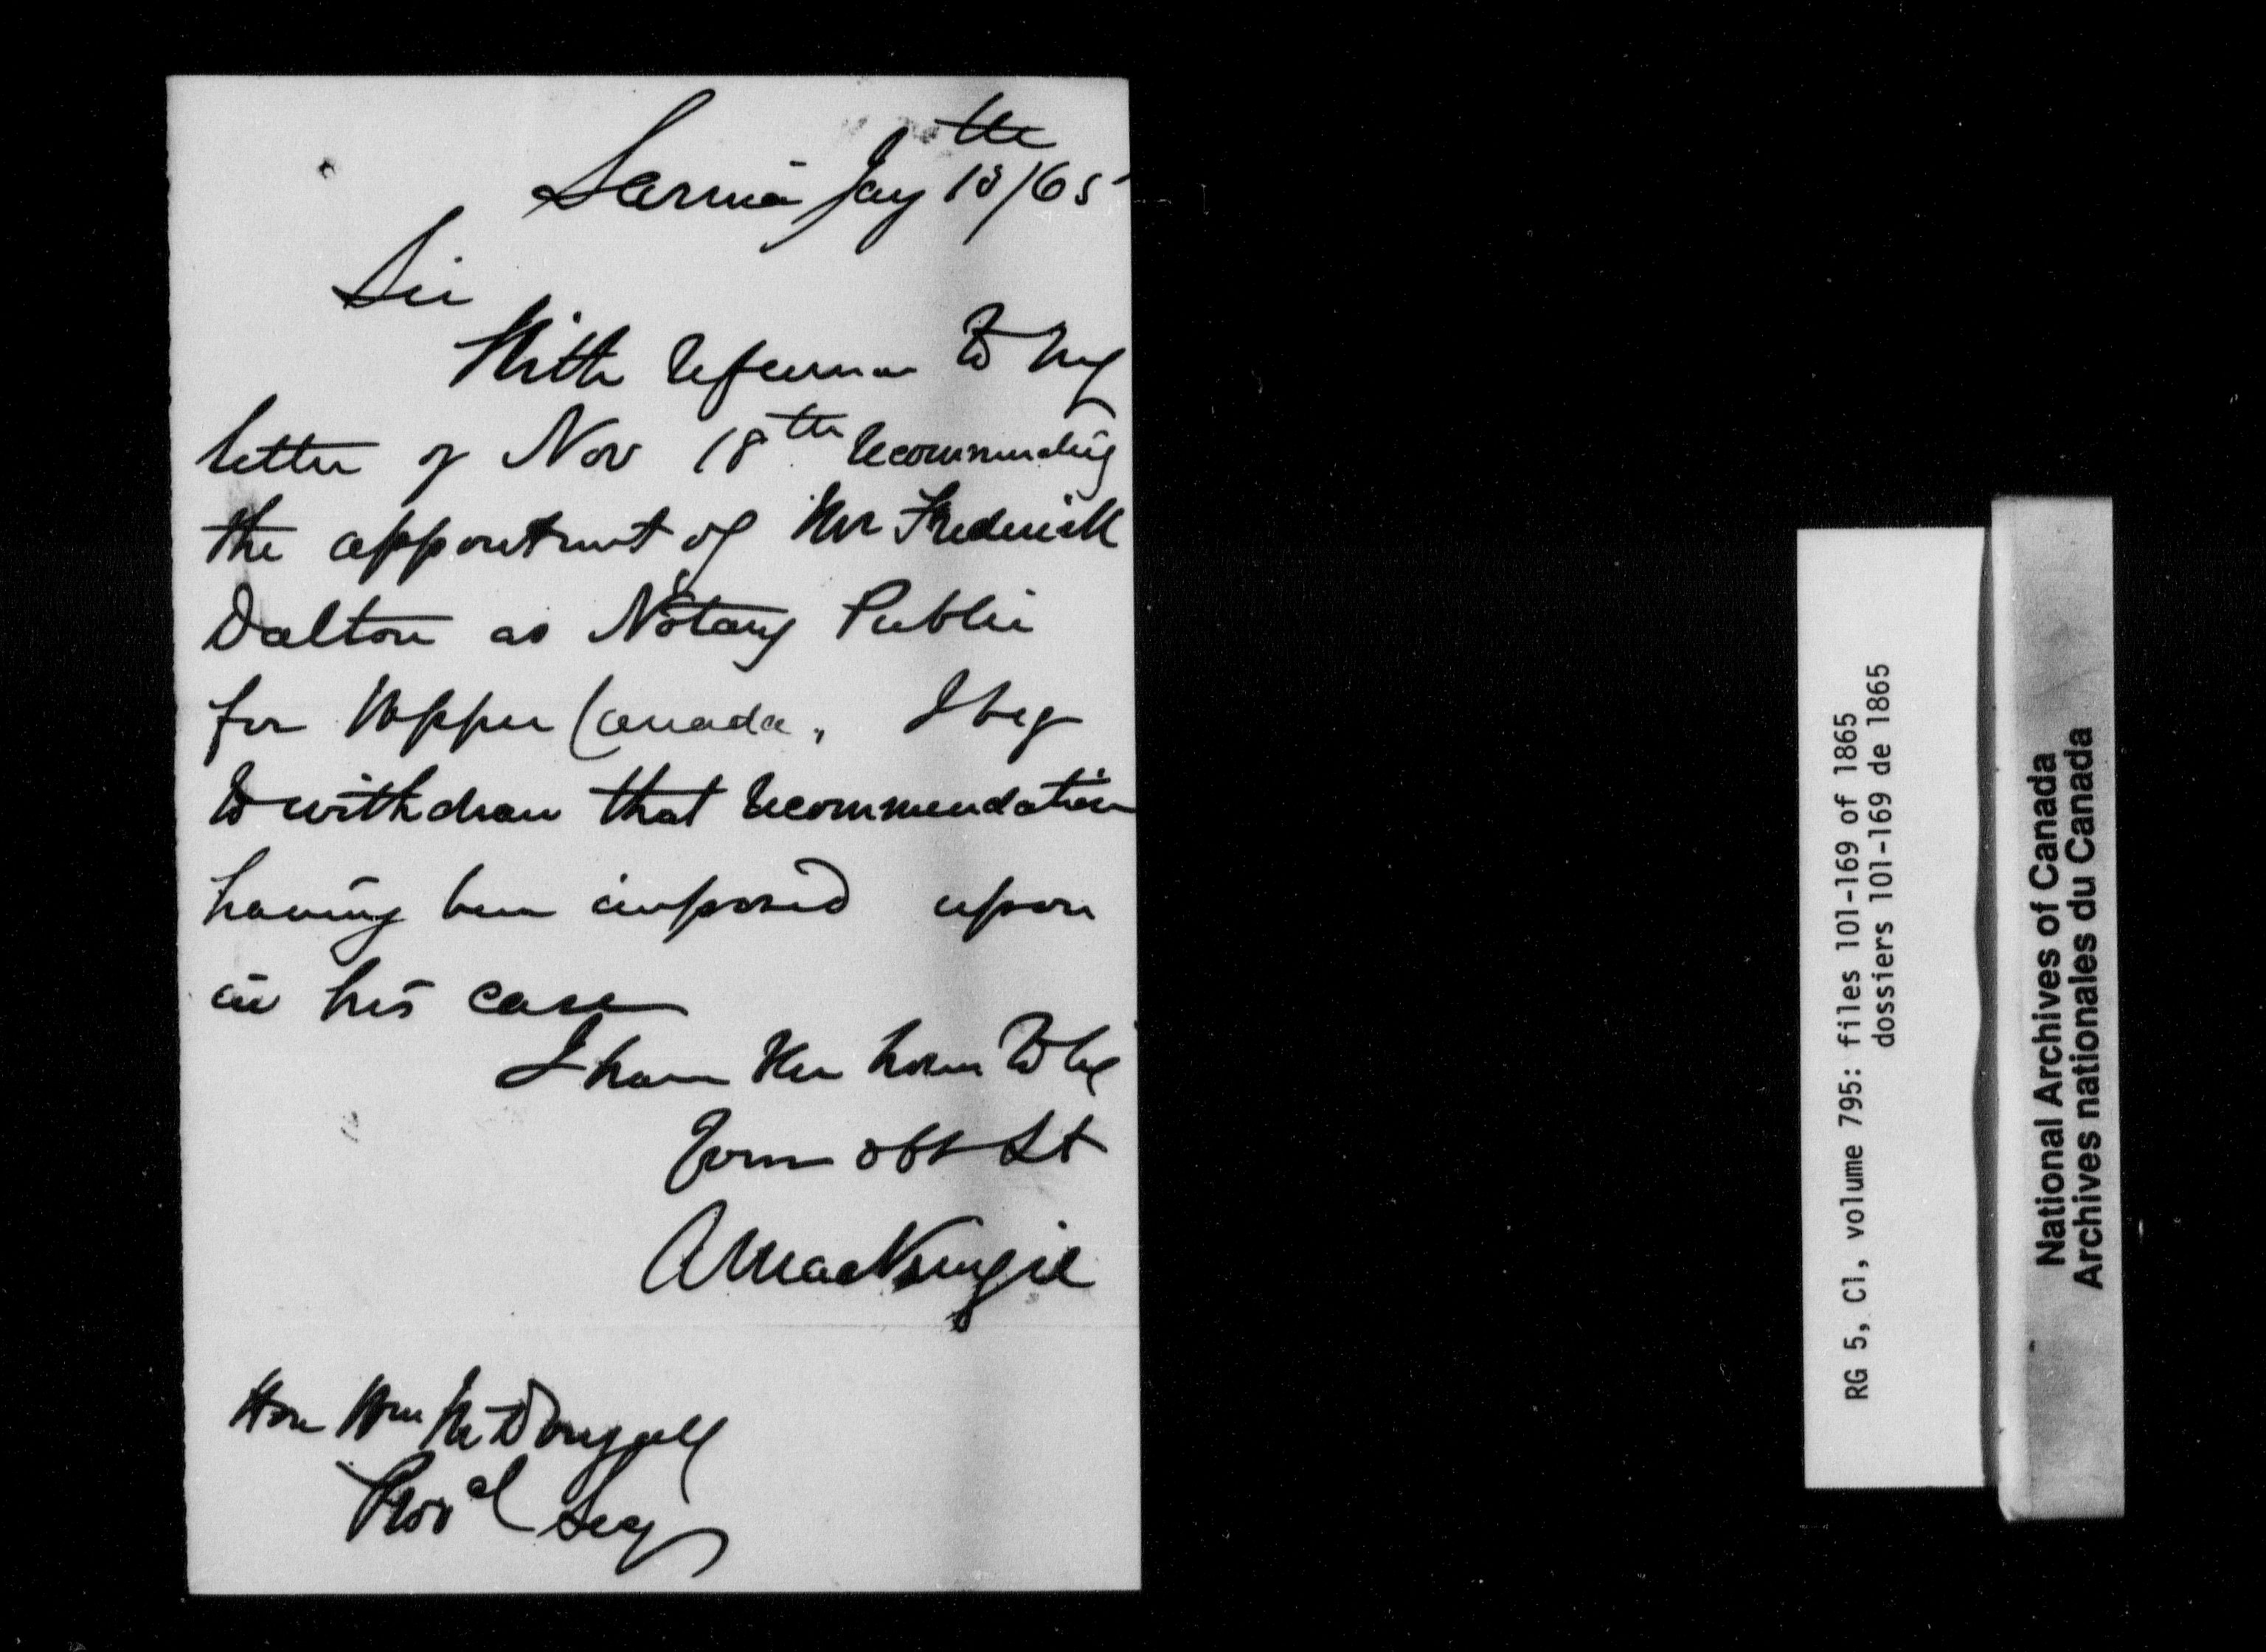 Sarnia Jay 18th/65
Sir
With reference to my
letter of Nov 18th recommending
the appointment of Mr Frederick
Dalton as Notary Public
for Upper Canada, I beg
to withdraw that recommendation
having been imposed upon
in his case
I have the honor to be
Your obt St
A Mackenzie
Hon Wm McDougall
Provl Secy
RG 5, C1, volume 795: files 101-169 of 1865
dossiers 101-169 de 1865
National Archives of Canada
Archives nationales du Canada